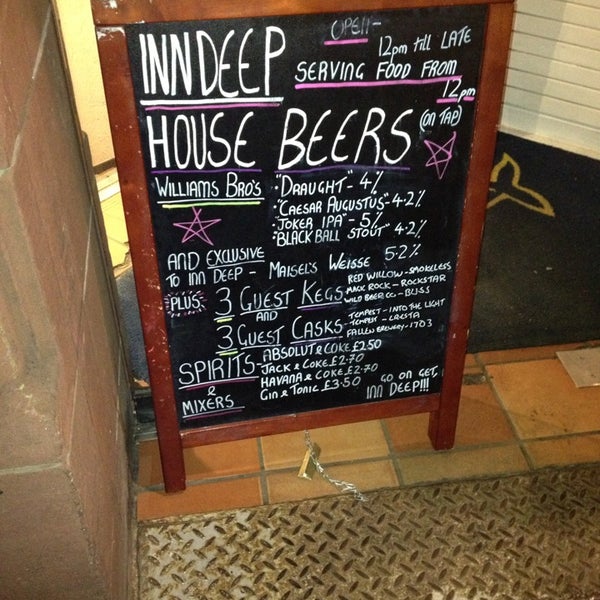 INN DEEP
OPEN -
12pm till LATE
SERVING FOOD FROM
12pm
HOUSE BEERS (ON TAP)
WILLIAMS BRO'S
"DRAUGHT" 4%
"CAESAR AUGUSTUS" - 4.2%
"JOKER IPA" - 5%
"BLACK BALL STOUT" 4.2%
AND EXCLUSIVE
TO INN DEEP - MAISEL'S WEISSE 5.2%
PLUS 3 GUEST KEGS
RED WILLOW - SMOKELESS
ROCK - ROCKSTAR
WILD BEER CO. - BLISS
AND
3 GUEST CASKS
TEMPEST - INTO THE LIGHT
TEMPEST - CRESTA
FALLEN BREWERY - 1703
SPIRITS
&
MIXERS
- ABSOLUT & COKE £2.50
JACK & COKE £2.70
HAVANA & COKE £2.70
GIN & TONIC £3.50
GO ON GET
INN DEEP!!!